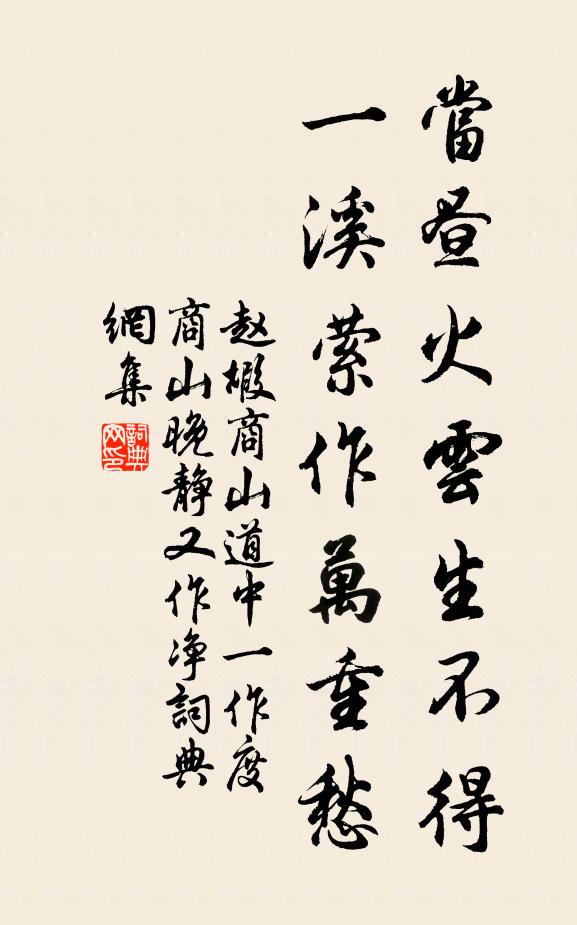 當昼火雲生不得
一溪縈作萬重愁
赵嘏商山道中一作度
商山晚静又作净詞典
網集
詞典
网印